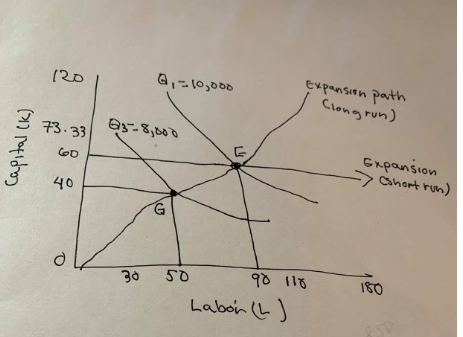 120
Q₁=10,000
Expansion path
(long run)
Capital (K)
73.33
Q3=8,000
60
E
Expansion
(short run)
40
G
0
30
50
90
110
180
Labor (L)